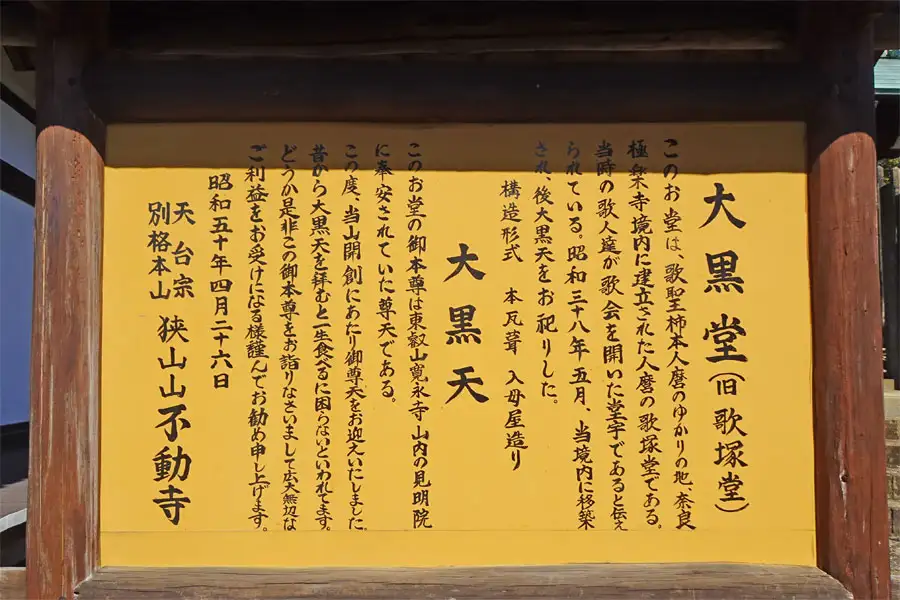 大黒堂（旧歌塚堂）
このお堂は、歌聖柿本人麿のゆかりの地、奈良
極楽寺境内に建立された人麿の歌塚堂である。
当時の歌人達が歌会を開いた堂宇であると伝え
られている。昭和三十八年五月、当境内に移築
され、後大黒天をお祀りした。
構造形式　本瓦葺　入母屋造り
大黒天
このお堂の御本尊は東叡山寛永寺山内の見明院
に奉安されていた尊天である。
この度、当山開創にあたり御尊天をお迎えいたしました。
昔から大黒天を拝むと一生食べるに困らないといわれてます。
どうか是非この御本尊をお詣りなさいまして広大無辺な
ご利益をお受けになる様謹んでお勧め申し上げます。
昭和五十年四月二十六日
天台宗
別格本山
狭山山不動寺